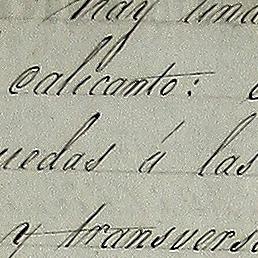 hay una
calicanto:
uedas á las
y transvers